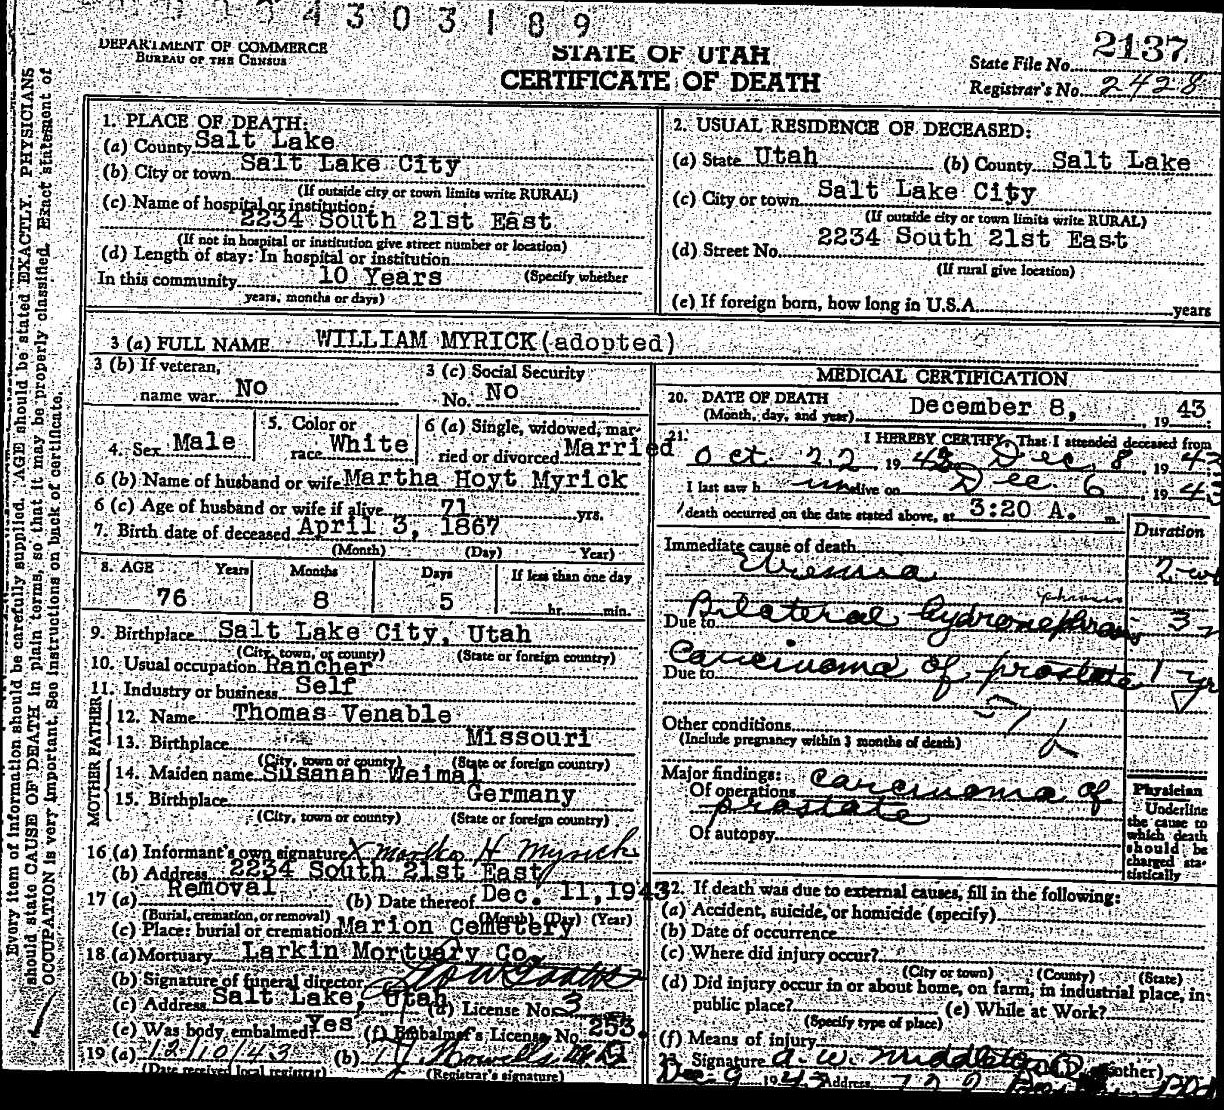 4303189
DEPARTMENT OF COMMERCE
BUREAU OF THE CENSUS
STATE OF UTAH
CERTIFICATE OF DEATH
State File No. 2137
Registrar's No. 2428
Every item of information should be carefully supplied. AGE should be stated EXACTLY. PHYSICIANS
should state CAUSE OF DEATH in plain terms, so that it may be properly classified. Exact statement of
OCCUPATION is very important. See instructions on back of certificate.
1. PLACE OF DEATH:
(a) County Salt Lake
(b) City or town Salt Lake City
(If outside city or town limits write RURAL)
(c) Name of hospital or institution:
2234 South 21st East
(If not in hospital or institution give street number or location)
(d) Length of stay: In hospital or institution
In this community 10 Years (Specify whether
years, months or days)
2. USUAL RESIDENCE OF DECEASED:
(a) State Utah (b) County Salt Lake
(c) City or town Salt Lake City
(If outside city or town limits write RURAL)
(d) Street No. 2234 South 21st East
(If rural give location)
(e) If foreign born, how long in U.S.A. years
3 (a) FULL NAME WILLIAM MYRICK(adopted)
3 (b) If veteran,
name war No
3 (c) Social Security
No. No
4. Sex Male
5. Color or
race White
6 (a) Single, widowed, mar-
ried or divorced Married
6 (b) Name of husband or wife Martha Hoyt Myrick
6 (c) Age of husband or wife if alive 71 yrs.
7. Birth date of deceased April 3, 1867
(Month) (Day) Year)
8. AGE Years Months Days If less than one day
76 8 5 hr. min.
9. Birthplace Salt Lake City, Utah
(City, town, or county) (State or foreign country)
10. Usual occupation Rancher
11. Industry or business Self
FATHER
12. Name Thomas Venable
13. Birthplace Missouri
(City, town or county) (State or foreign country)
MOTHER
14. Maiden name Susanah Weimal
15. Birthplace Germany
(City, town or county) (State or foreign country)
16 (a) Informant's own signature X Martha H Myrick
(b) Address 2234 South 21st East
17 (a) Removal (b) Date thereof Dec. 11, 1943
(Burial, cremation, or removal) (Month) (Day) (Year)
(c) Place: burial or cremation Marion Cemetery
18 (a) Mortuary Larkin Mortuary Co.
(b) Signature of funeral director
(c) Address Salt Lake, Utah (d) License No. 3
(e) Was body embalmed? Yes (f) Embalmer's License No. 253.
19 (a) 12/10/43 (b)
(Date received local registrar) (Registrar's signature)
MEDICAL CERTIFICATION
20. DATE OF DEATH
(Month, day, and year) December 8, 1943
21. I HEREBY CERTIFY, That I attended deceased from
Oct. 22, 1943 Dec. 8 1943
I last saw h im alive on Dec. 6, 1943
death occurred on the date stated above, at 3:20 A. m.
Duration
Immediate cause of death
Uremia 2-wk
Due to Bilateral hydronephrosis 3
Due to Carcinoma of prostate 1-yr
Other conditions
(Include pregnancy within 3 months of death)
Major findings:
Of operations carcinoma of
prostate
Of autopsy
Physician
Underline
the cause to
which death
should be
charged sta-
tistically
22. If death was due to external causes, fill in the following:
(a) Accident, suicide, or homicide (specify)
(b) Date of occurrence
(c) Where did injury occur?
(City or town) (County) (State)
(d) Did injury occur in or about home, on farm, in industrial place, in
public place? (e) While at Work?
(Specify type of place)
(f) Means of injury
23. Signature A. W. Middleton (other)
Dec-9 1943 Address